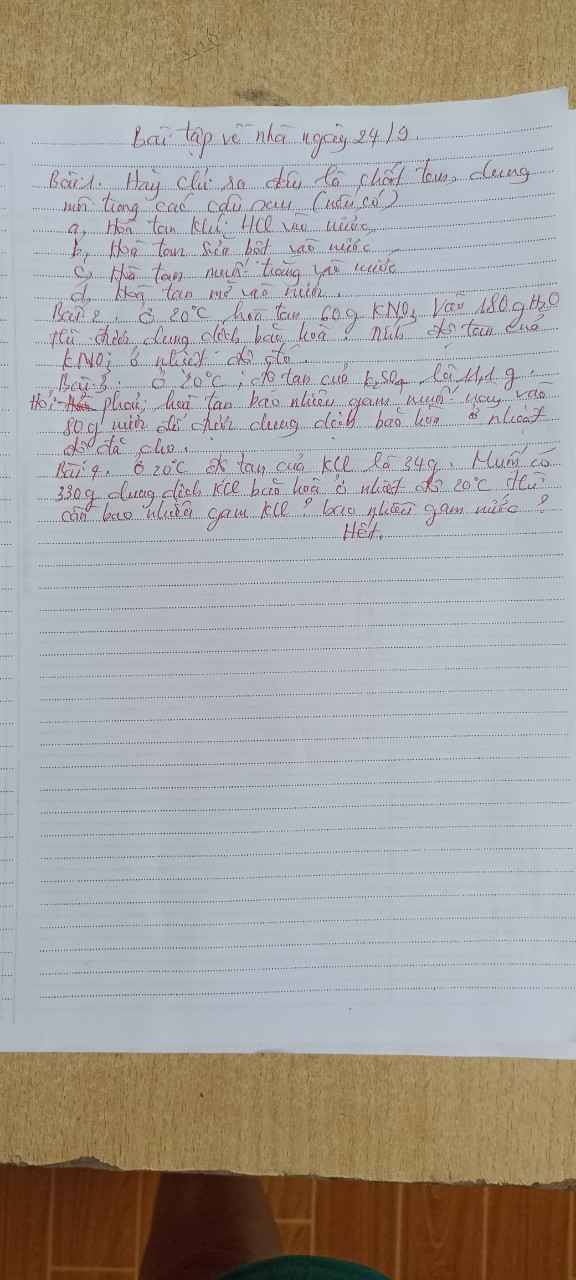 Bài tập về nhà ngày 24/9.
Bài 1. Hãy chỉ ra đâu là chất tan, dung
môi trong các câu sau (nếu có)
a, Hoà tan khí HCl vào nước
b, Hoà tan sữa bột vào nước
c, Hoà tan muối trắng vào nước
d, Hoà tan mỡ vào nước.
Bài 2. Ở 20°C hoà tan 60g KNO₃ vào 180g H₂O
thì được dung dịch bão hoà. Tính độ tan của
KNO₃ ở nhiệt độ đó.
Bài 3. Ở 20°C, độ tan của K₂SO₄ là 11,1 g.
Hỏi phải hoà tan bao nhiêu gam muối này vào
80g nước để được dung dịch bão hoà ở nhiệt
độ đã cho.
Bài 4. Ở 20°C độ tan của KCl là 34g. Muốn có
330g dung dịch KCl bão hoà ở nhiệt độ 20°C thì
cần bao nhiêu gam KCl? bao nhiêu gam nước?
Hết.